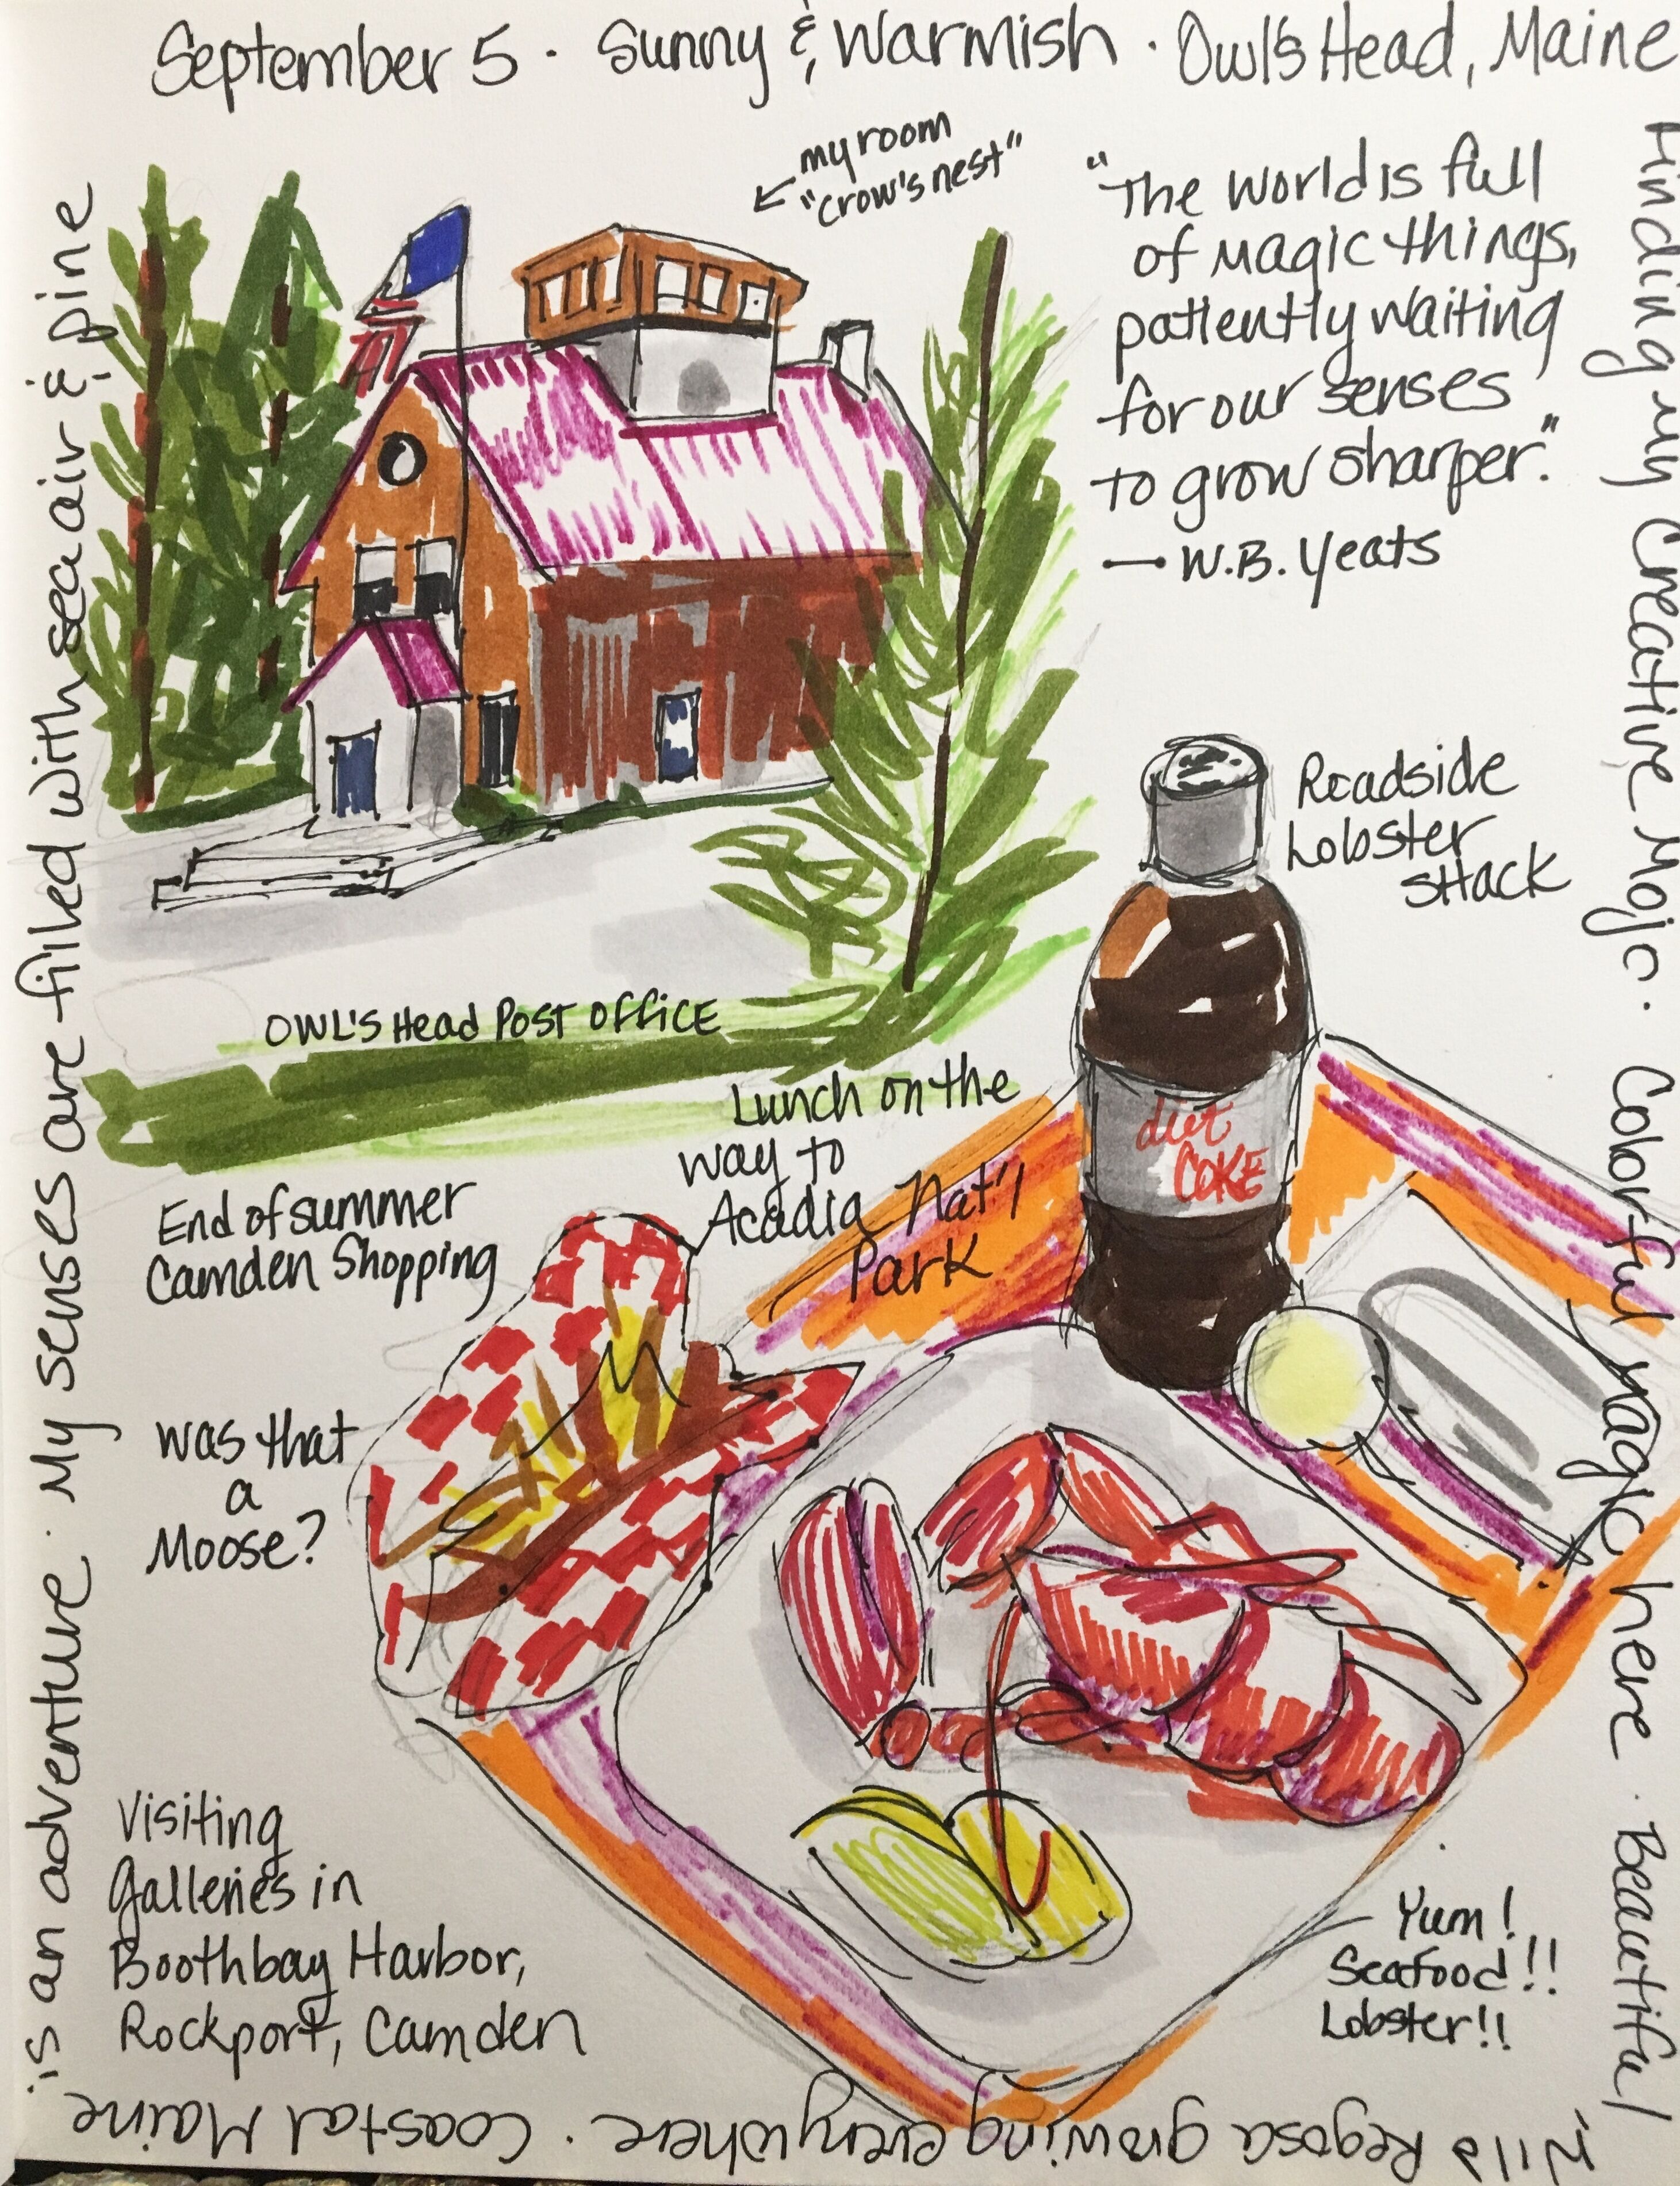 September 5 · Sunny & Warmish · Owl's Head, Maine
my room
"crow's nest"
"The world is full
of magic things,
patiently waiting
for our senses
to grow sharper."
— W.B. Yeats
Roadside
Lobster
SHACK
OWL'S Head POST OFFICE
Lunch on the
way to
Acadia Nat'l
Park
diet
COKE
End of summer
Camden Shopping
was that
a
Moose?
Visiting
Galleries in
Boothbay Harbor,
Rockport, Camden
Yum!
Seafood!!
Lobster!!
Finding my Creative Mojo. Colorful magic here. Beautiful
Wild Regosa growing everywhere. Coastal Maine
is an adventure. My senses are filled with sea air & pine